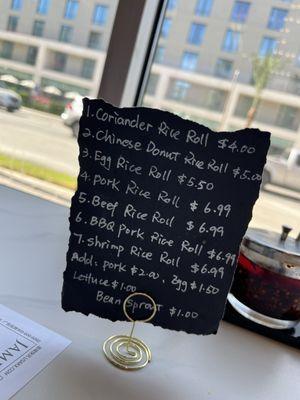 1. Coriander Rice Roll $4.00
2. Chinese Donut Rice Roll $5.00
3. Egg Rice Roll $5.50
4. Pork Rice Roll $6.99
5. Beef Rice Roll $6.99
6. BBQ Pork Rice Roll $6.99
7. Shrimp Rice Roll $6.99
Add: pork $2.00, Egg $1.50
Lettuce $1.00
Bean Sprout $1.00